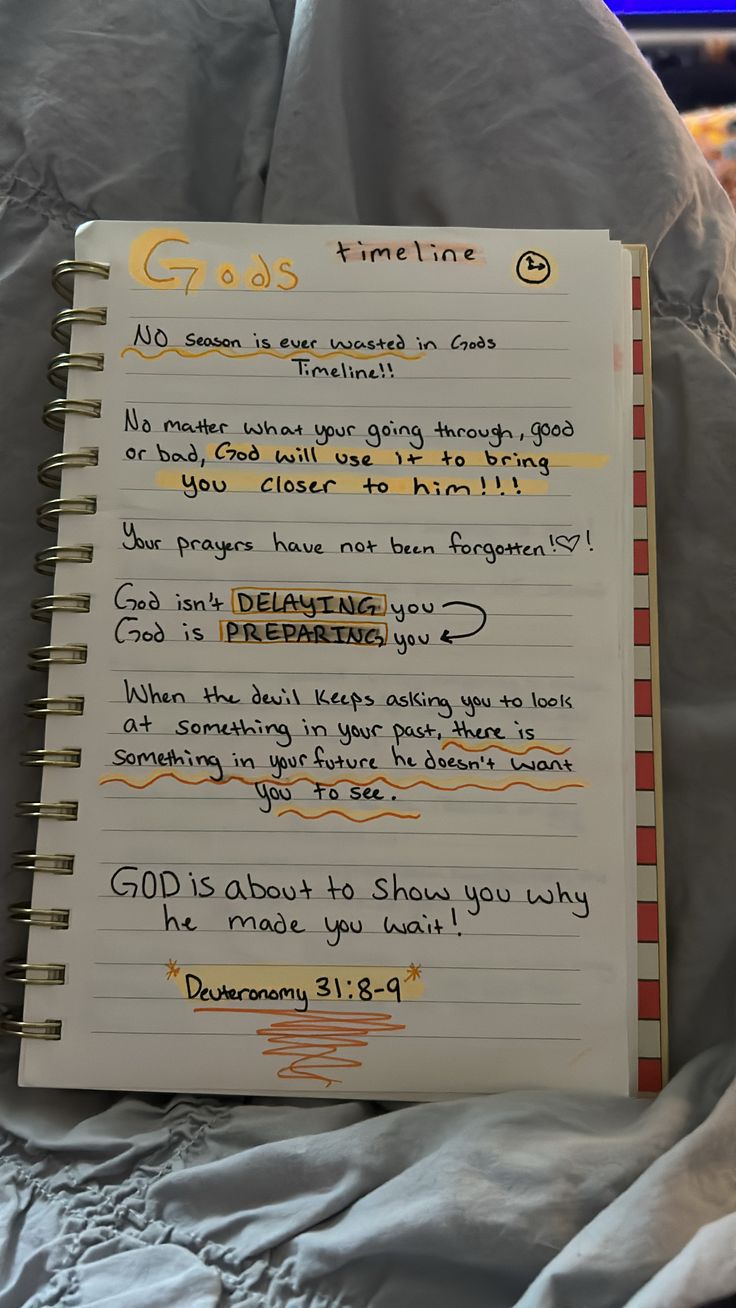 Gods timeline
NO season is ever wasted in Gods
Timeline!!
No matter what your going through, good
or bad, God will use it to bring
you closer to him!!!
Your prayers have not been forgotten!♡!
God isn't DELAYING you
God is PREPARING you
When the devil keeps asking you to look
at something in your past, there is
something in your future he doesn't want
you to see.
GOD is about to show you why
he made you wait!
*Deuteronomy 31:8-9*